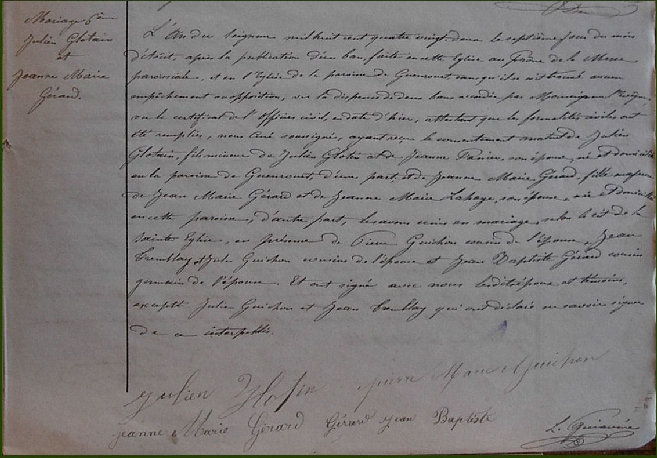 Mariage 6e
Julien Glotain
et
Jeanne Marie
Gérard.
L'An du Seigneur mil huit cent quatre vingt-deux le septième jour du mois
d'août, après la publication d'un ban faite en cette Eglise au Prône de la Messe
paroissiale, et en l'Eglise de la paroisse de Guenrouet sans qu'il ait trouvé aucun
empêchement ou opposition, vu la dispense de deux bans accordée par Monseigneur l'Evêque,
vu le certificat de l'Officier civil, en date d'hier, attestant que les formalités civiles ont
été remplies, nous Curé soussigné, ayant reçu le consentement mutuel de Julien
Glotain, fils mineur de Julien Glotin et de Jeanne son épouse, né et domicilié
en la paroisse de Guenrouet, d'une part, et de Jeanne Marie Gérard, fille majeure
de Jean Marie Gérard et de Jeanne Marie Lahaye, son épouse, née et domiciliée
en cette paroisse, d'autre part, les avons unis en mariage, selon le rit de la
Sainte Eglise, en présence de Pierre Guichon cousin de l'époux, Jean
Tremblay et Julien Guichon cousins de l'époux et Jean Baptiste Gérard cousin
germain de l'épouse. Et ont signé avec nous lesdits époux et témoins,
excepté Julien Guichon et Jean Tremblay qui ont déclaré ne savoir signer
de ce interpellés.
Julien Glotin pierre Marie Guichon
Jeanne Marie Gérard Gérard Jean Baptiste